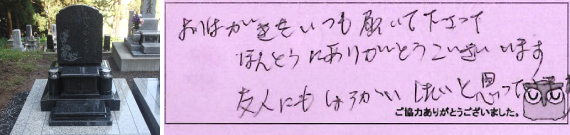 おはがきをいつも頂いて下さって
ほんとうにありがとうございます
友人にもしょうかいしたいと思って
ご協力ありがとうございました。